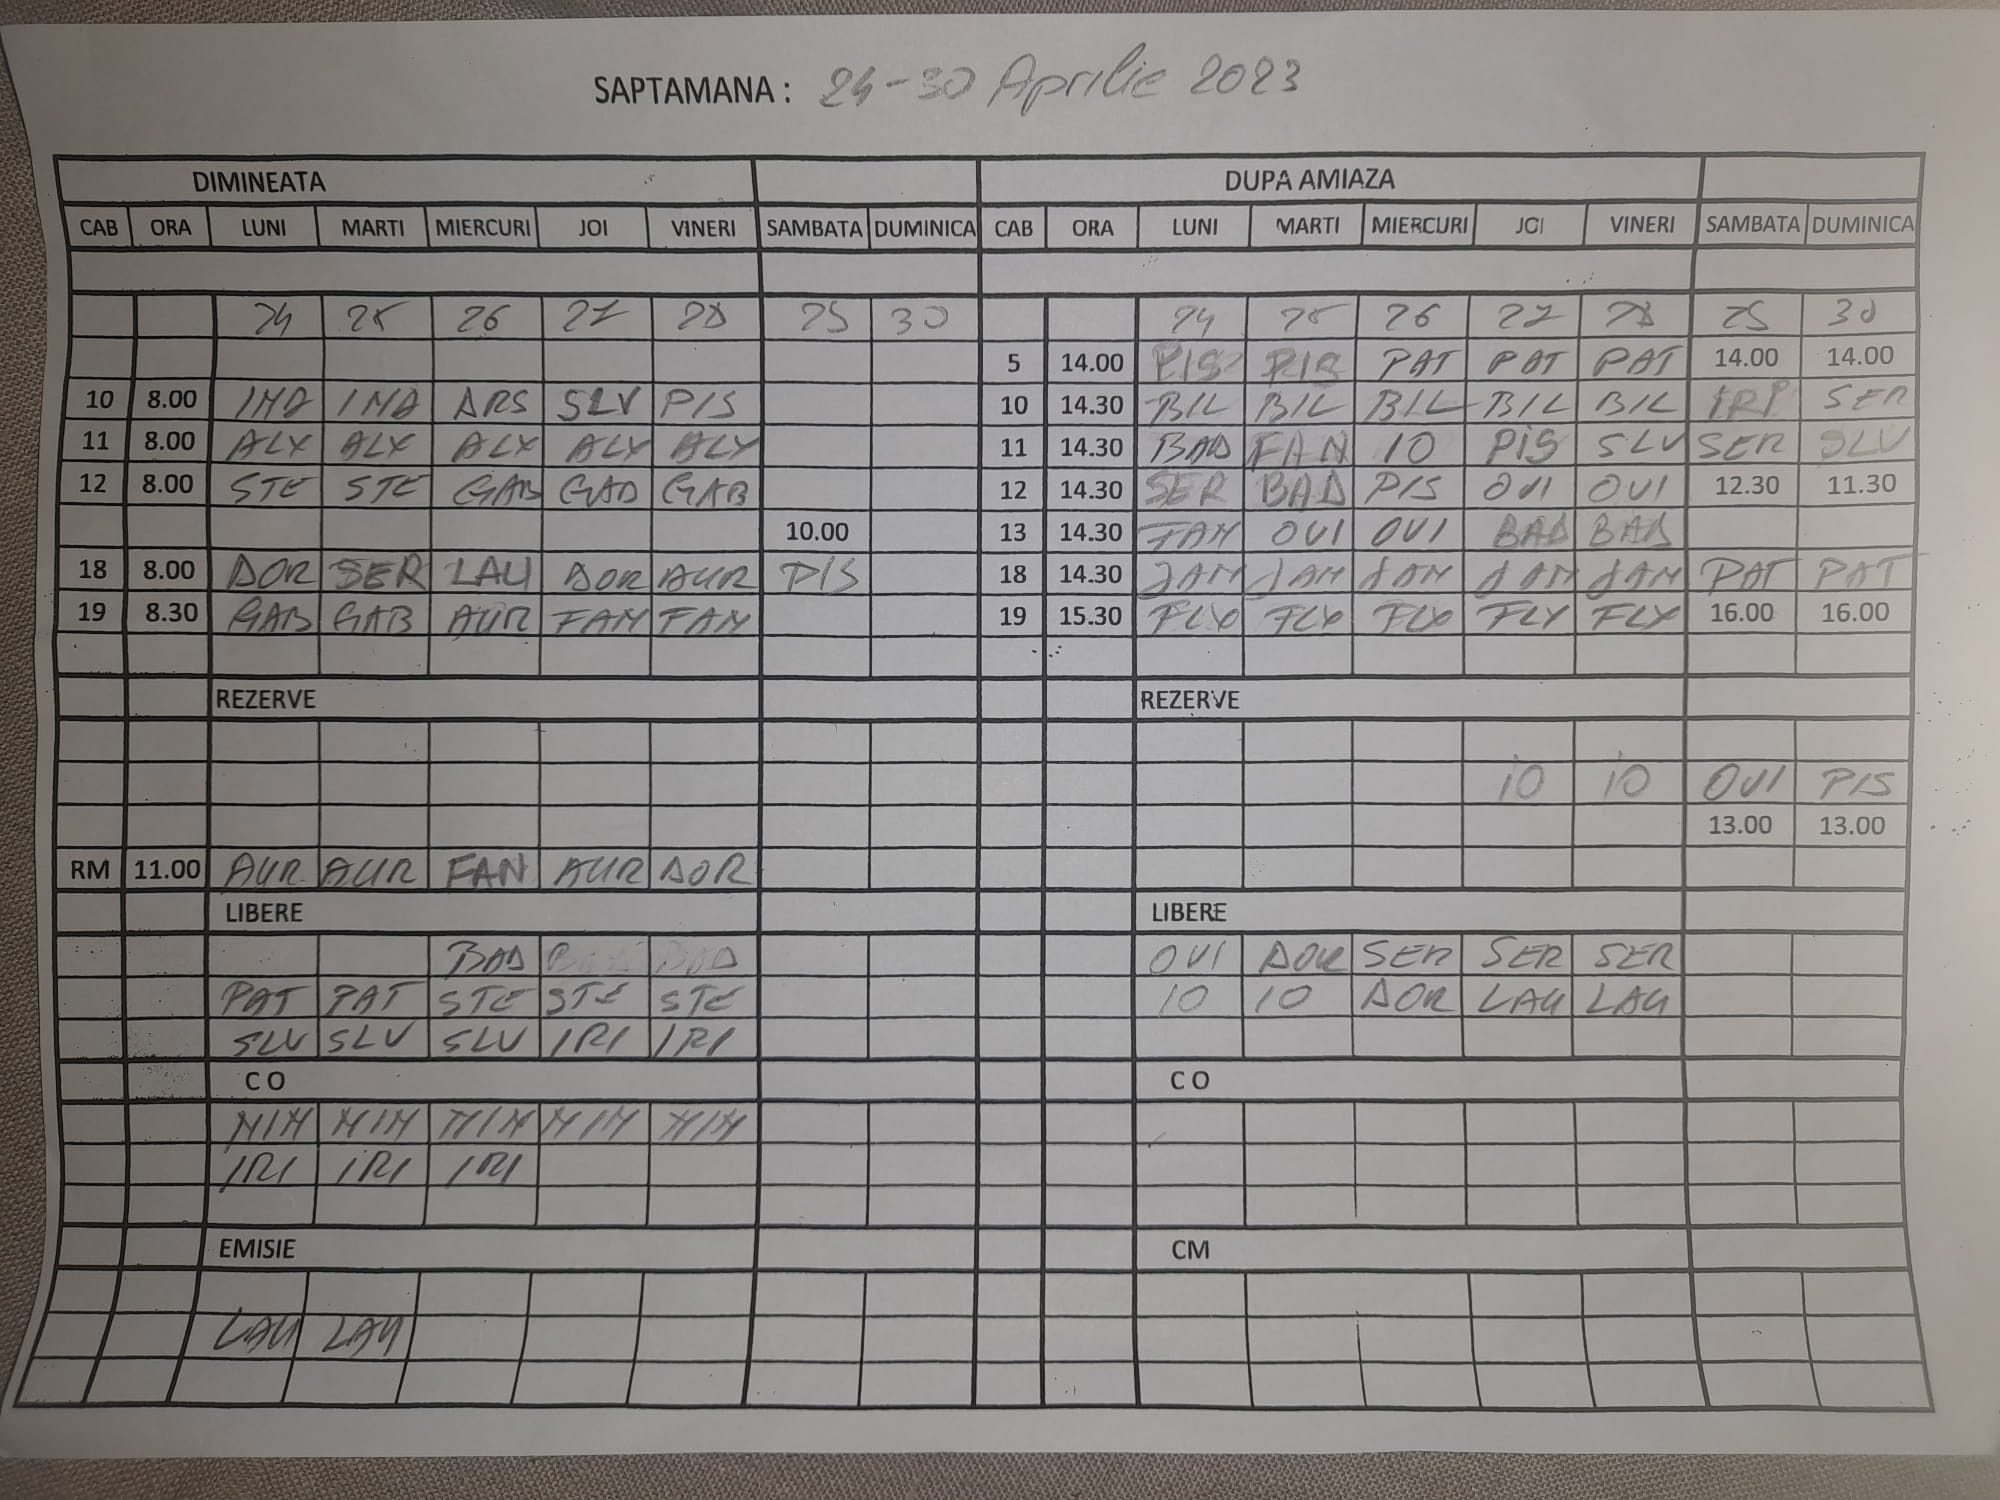 SAPTAMANA : 24-30 Aprilie 2023
DIMINEATA DUPA AMIAZA
CAB ORA LUNI MARTI MIERCURI JOI VINERI SAMBATA DUMINICA CAB ORA LUNI MARTI MIERCURI JOI VINERI SAMBATA DUMINICA
24 25 26 27 28 29 30 24 25 26 27 28 29 30
5 14.00 PIS PIS PAT PAT PAT 14.00 14.00
10 8.00 ARS SLV PIS 10 14.30 BIL BIL BIL BIL BIL IRI SER
11 8.00 ALX ALX ALX ALX ALX 11 14.30 BAD FAN IO PIS SLV SER SLV
12 8.00 STE STE GAB GAB GAB 12 14.30 SER BAD PIS OVI OVI 12.30 11.30
10.00 13 14.30 FAN OVI OVI BAD BAD
18 8.00 DOR SER LAU DOR AUR PIS 18 14.30 DAN DAN DAN DAN DAN PAT PAT
19 8.30 GAB GAB AUR FAN FAN 19 15.30 FLX FLX FLX FLX FLX 16.00 16.00
REZERVE REZERVE
IO IO OVI PIS
13.00 13.00
RM 11.00 AUR AUR FAN AUR DOR
LIBERE LIBERE
BAD BAD BAD OVI DOR SER SER SER
PAT PAT STE STE STE IO IO DOR LAU LAU
SLV SLV SLV IRI IRI
C O C O
MIH MIH MIH MIH MIH
IRI IRI IRI
EMISIE CM
LAU LAU